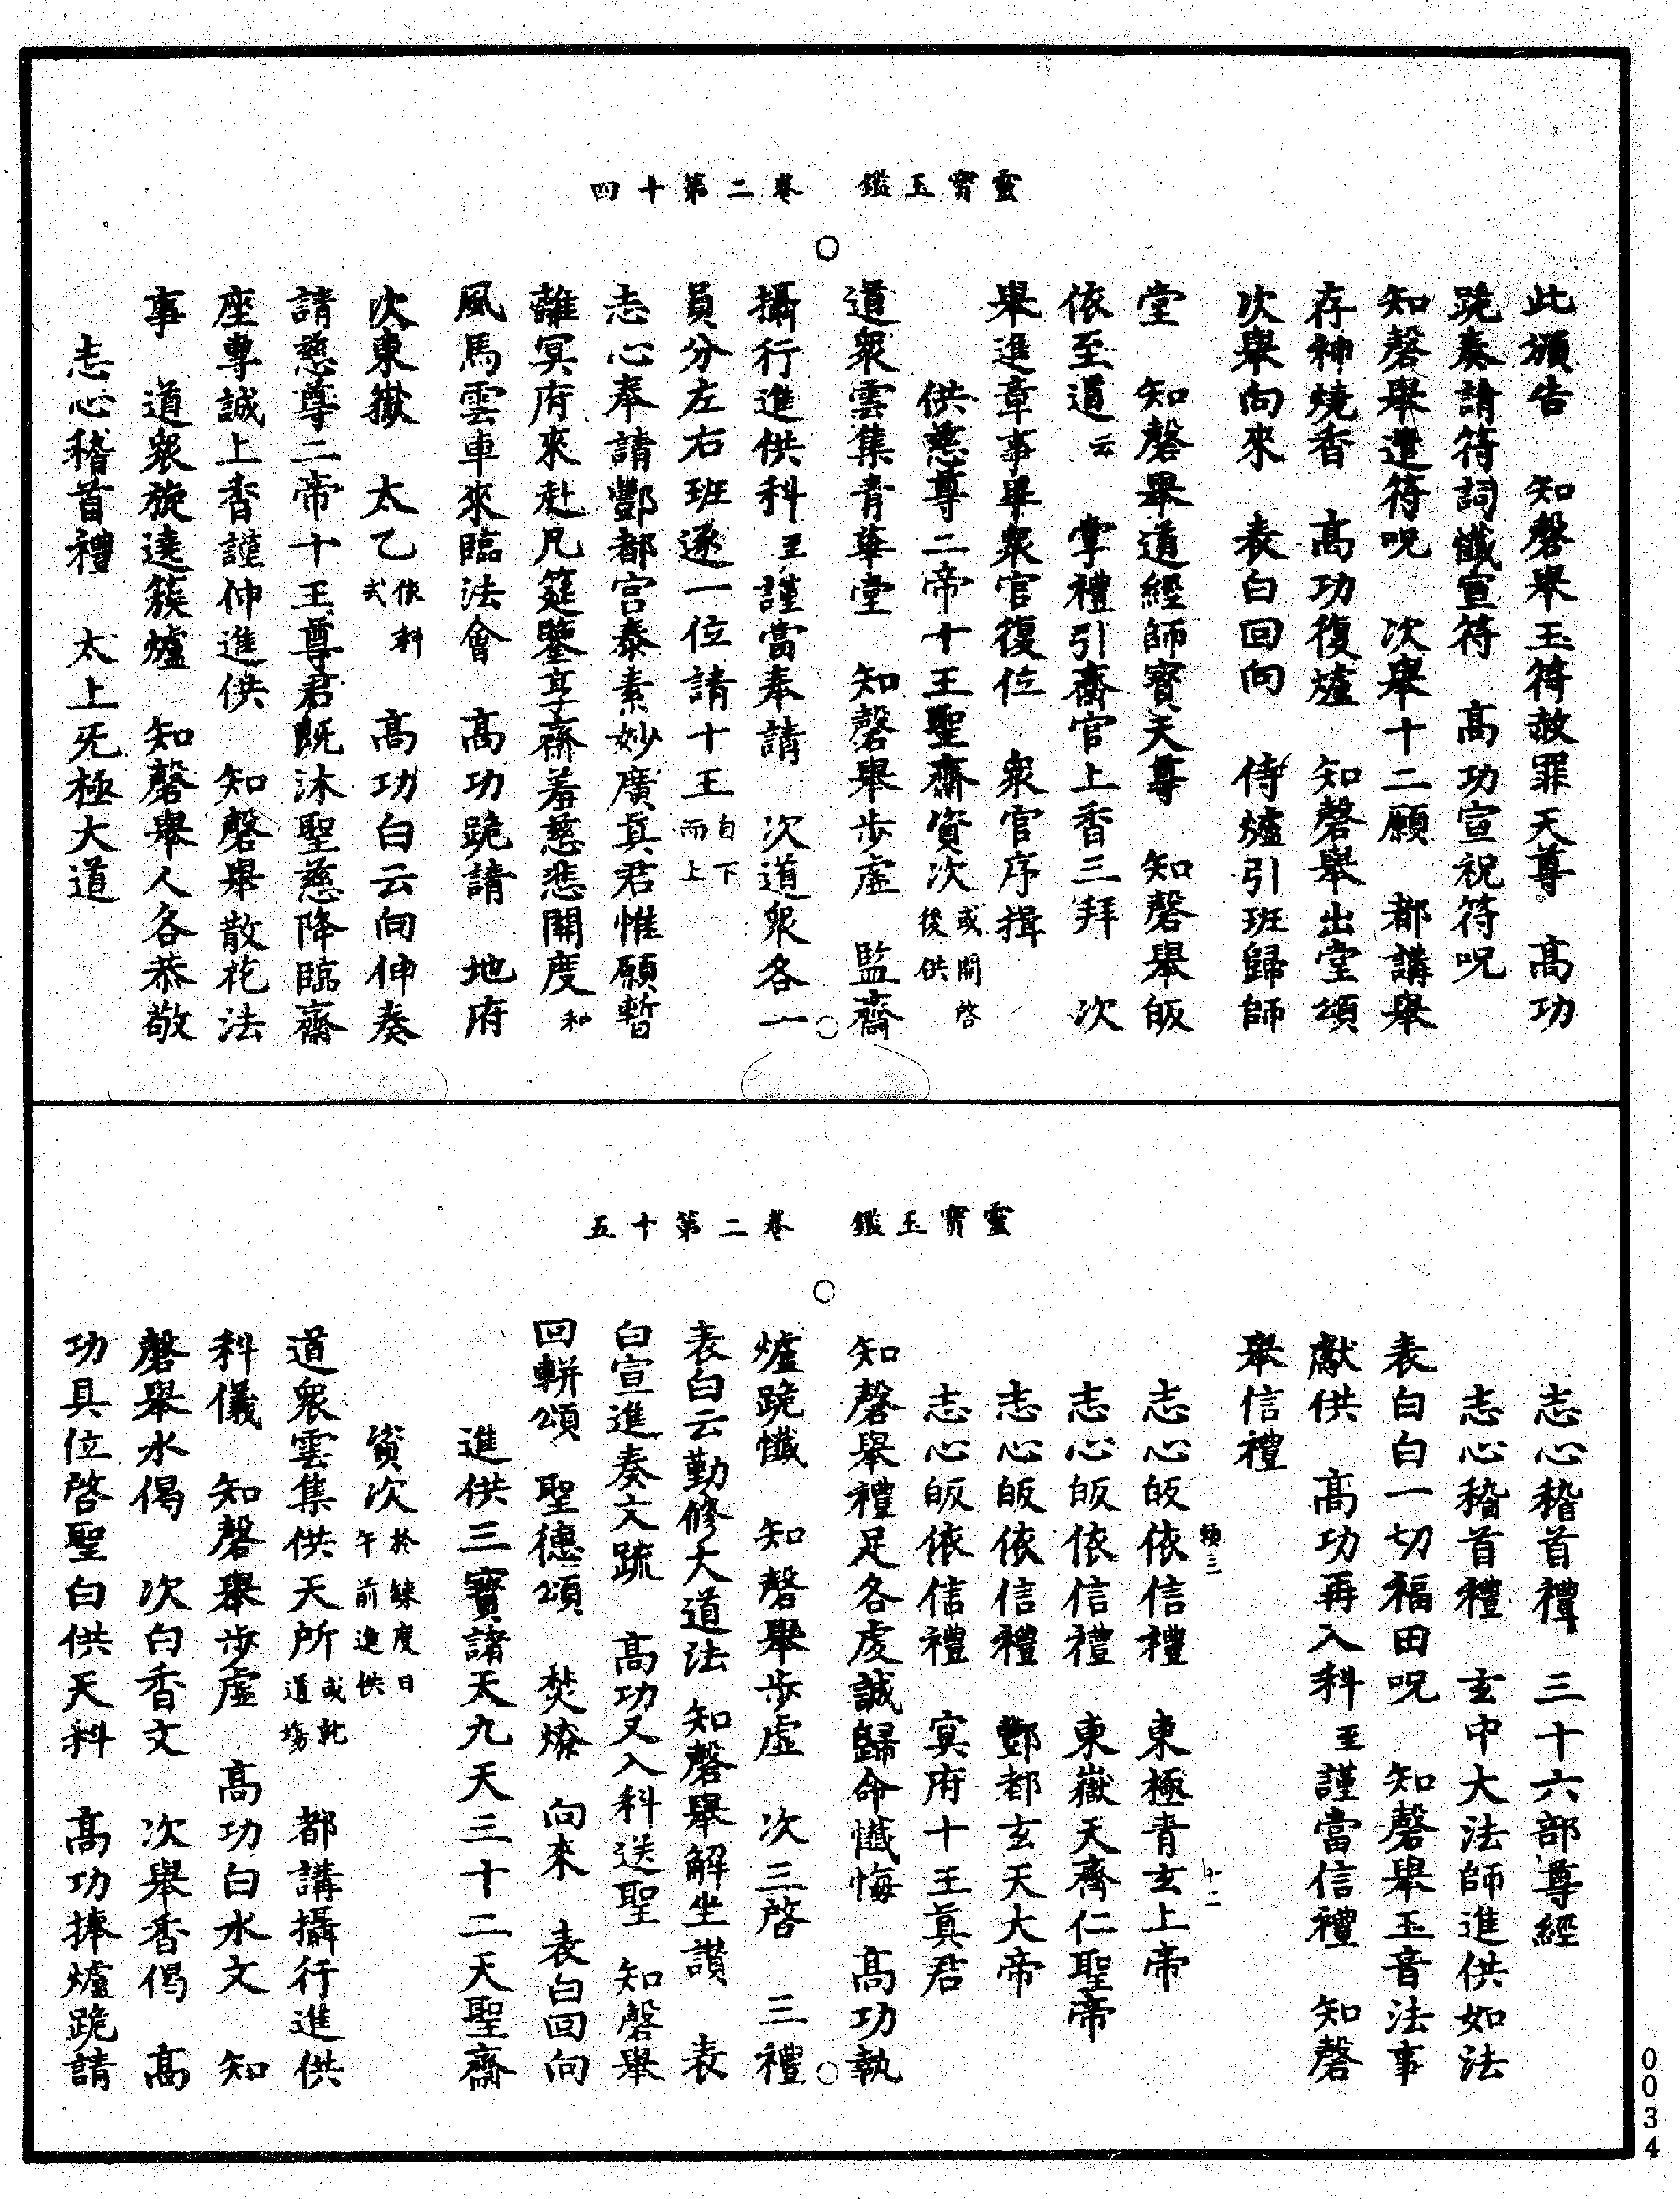 靈寶玉鑑　卷二第十四
此頒告　知磬舉玉符赦罪天尊　高功
跪奏請符詞懺宣符　高功宣祝符呪
知磬舉遣符呪　次舉十二願　都講舉
存神燒香　高功復爐　知磬舉出堂頌
次舉向來　表白回向　侍爐引班歸師
堂　知磬舉道經師寶天尊　知磬舉皈
依至道云　掌禮引齋官上香三拜　次
舉進章事畢衆官復位　衆官序揖
供慈尊二帝十王聖齋資次或開啓後供
道衆雲集青華堂　知磬舉步虛　監齋
攝行進供科至謹當奉請　次道衆各一
員分左右班逐一位請十王自下而上
志心奉請酆都宮泰素妙廣真君惟願暫
離冥府來赴凡筵鑒享齋羞慈悲開度和
風馬雲車來臨法會　高功跪請　地府
次東嶽　太乙依科式　高功白云向伸奏
請慈尊二帝十王尊君旣沐聖慈降臨齋
座專誠上香謹伸進供　知磬舉散花法
事　道衆旋遶簇爐　知磬舉人各恭敬
志心稽首禮　太上无極大道
靈寶玉鑑　卷二第十五
志心稽首禮　三十六部尊經
志心稽首禮　玄中大法師進供如法
表白白一切福田呪　知磬舉玉音法事
獻供　高功再入科至謹當信禮　知磬
舉信禮
頖三　十二
志心皈依信禮　東極青玄上帝
志心皈依信禮　東嶽天齊仁聖帝
志心皈依信禮　酆都玄天大帝
志心皈依信禮　冥府十王真君
知磬舉禮足各虔誠歸命懺悔　高功執
爐跪懺　知磬舉步虛　次三啓　三禮
表白云勤修大道法　知磬舉解坐讚　表
白宣進奏文疏　高功又入科送聖　知磬舉
回軿頌　聖德頌　焚燎　向來　表白回向
進供三寶諸天九天三十二天聖齋
資次於鍊度日午前進供
道衆雲集供天所或就道場　都講攝行進供
科儀　知磬舉步虛　高功白水文　知
磬舉水偈　次白香文　次舉香偈　高
功具位啓聖白供天科　高功捧爐跪請
0034